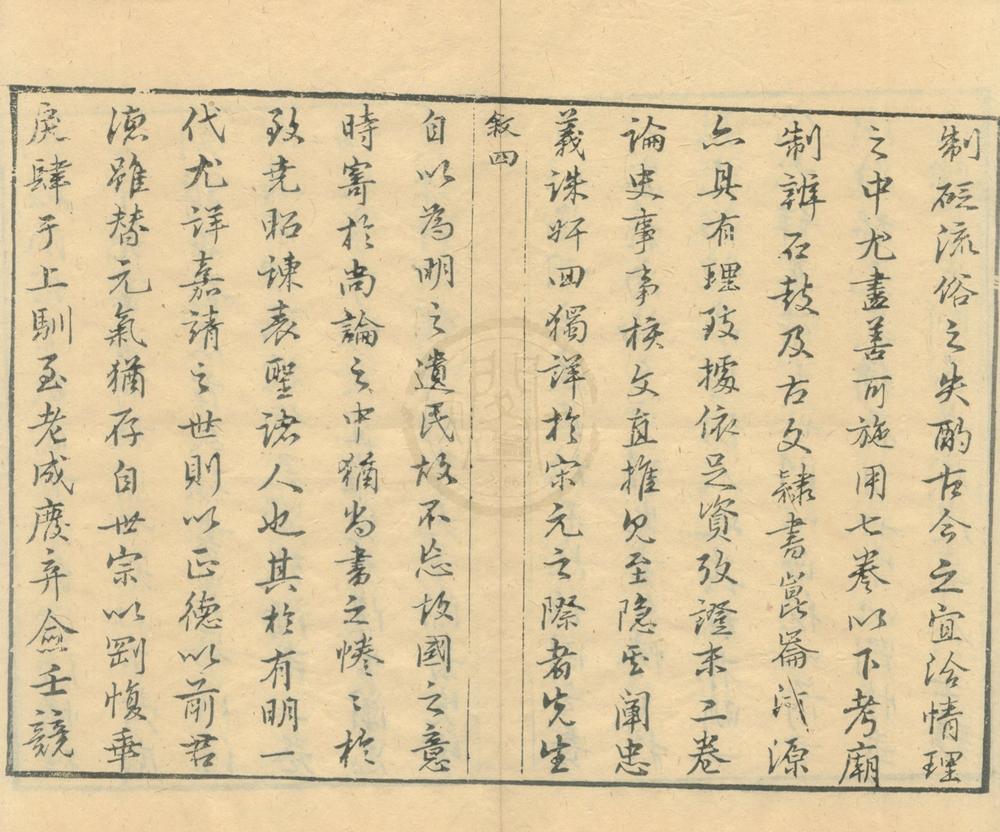 制砭流俗之失酌古今之宜洽情理
之中尤盡善可施用七卷以下考廟
制辨石鼓及古文隸書崑崙河源
亦具有理致據依足資攷證末二卷
論史事事核文直推見至隱至闡忠
義誅奸回獨詳於宋元之際者先生
敘四
自以為明之遺民故不忘故國之意
時寄於尚論之中猶尚書之惓〻於
致堯昭諫表聖諸人也其於有明一
代尤詳嘉靖之世則以正德以前君
德雖替元氣猶存自世宗以剛愎乖
戾肆于上馴至老成廢弃僉壬競